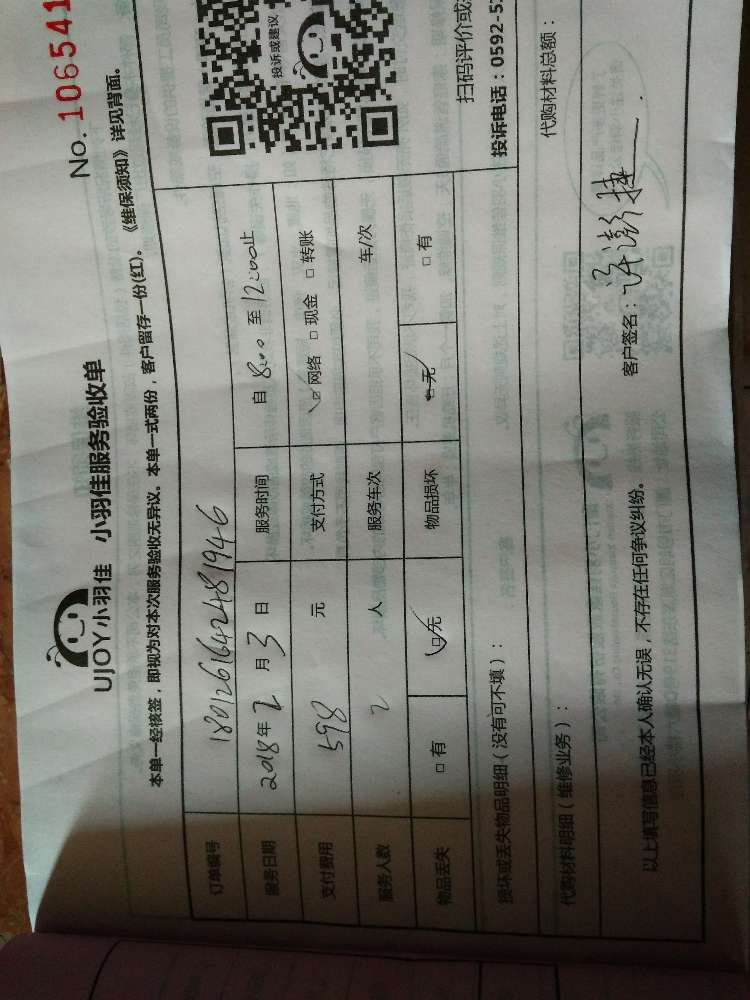 UJOY小羽佳 小羽佳服务验收单
No. 106541
本单一经核签，即视为对本次服务验收无异议。本单一式两份，客户留存一份(红)。《维保须知》详见背面。
订单编号 1801261642481946
服务日期 2018年2月3日 服务时间 自8:00至12:00止
支付费用 598 元 支付方式 ☑网络 □现金 □转账
服务人数 2 人 服务车次 车/次
物品丢失 □有 ☑无 物品损坏 ☑无 □有
投诉或建议
扫码评价或
投诉电话：0592-5
损坏或丢失物品明细（没有可不填）：
代购材料明细（维修业务）： 代购材料总额：
以上填写信息已经本人确认无误，不存在任何争议纠纷。 客户签名：许澎捷